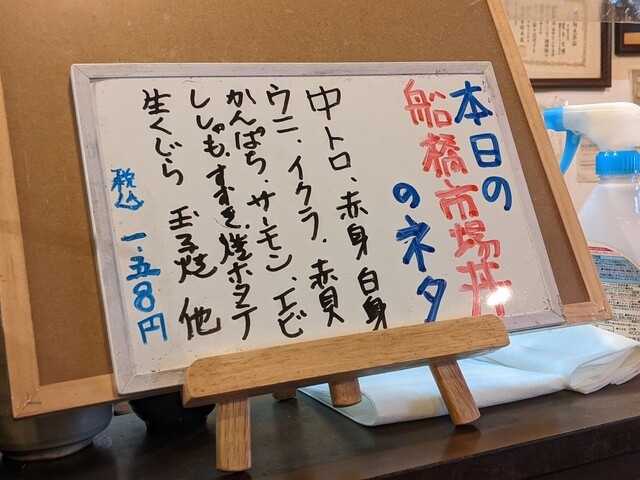 本日の
船橋市場丼
のネタ
中トロ、赤身 白身
ウニ、イクラ、赤貝
かんぱち、サーモン、エビ
ししゃも、すずき、生ホタテ
生くじら 玉子焼 他
税込 一、五八〇円